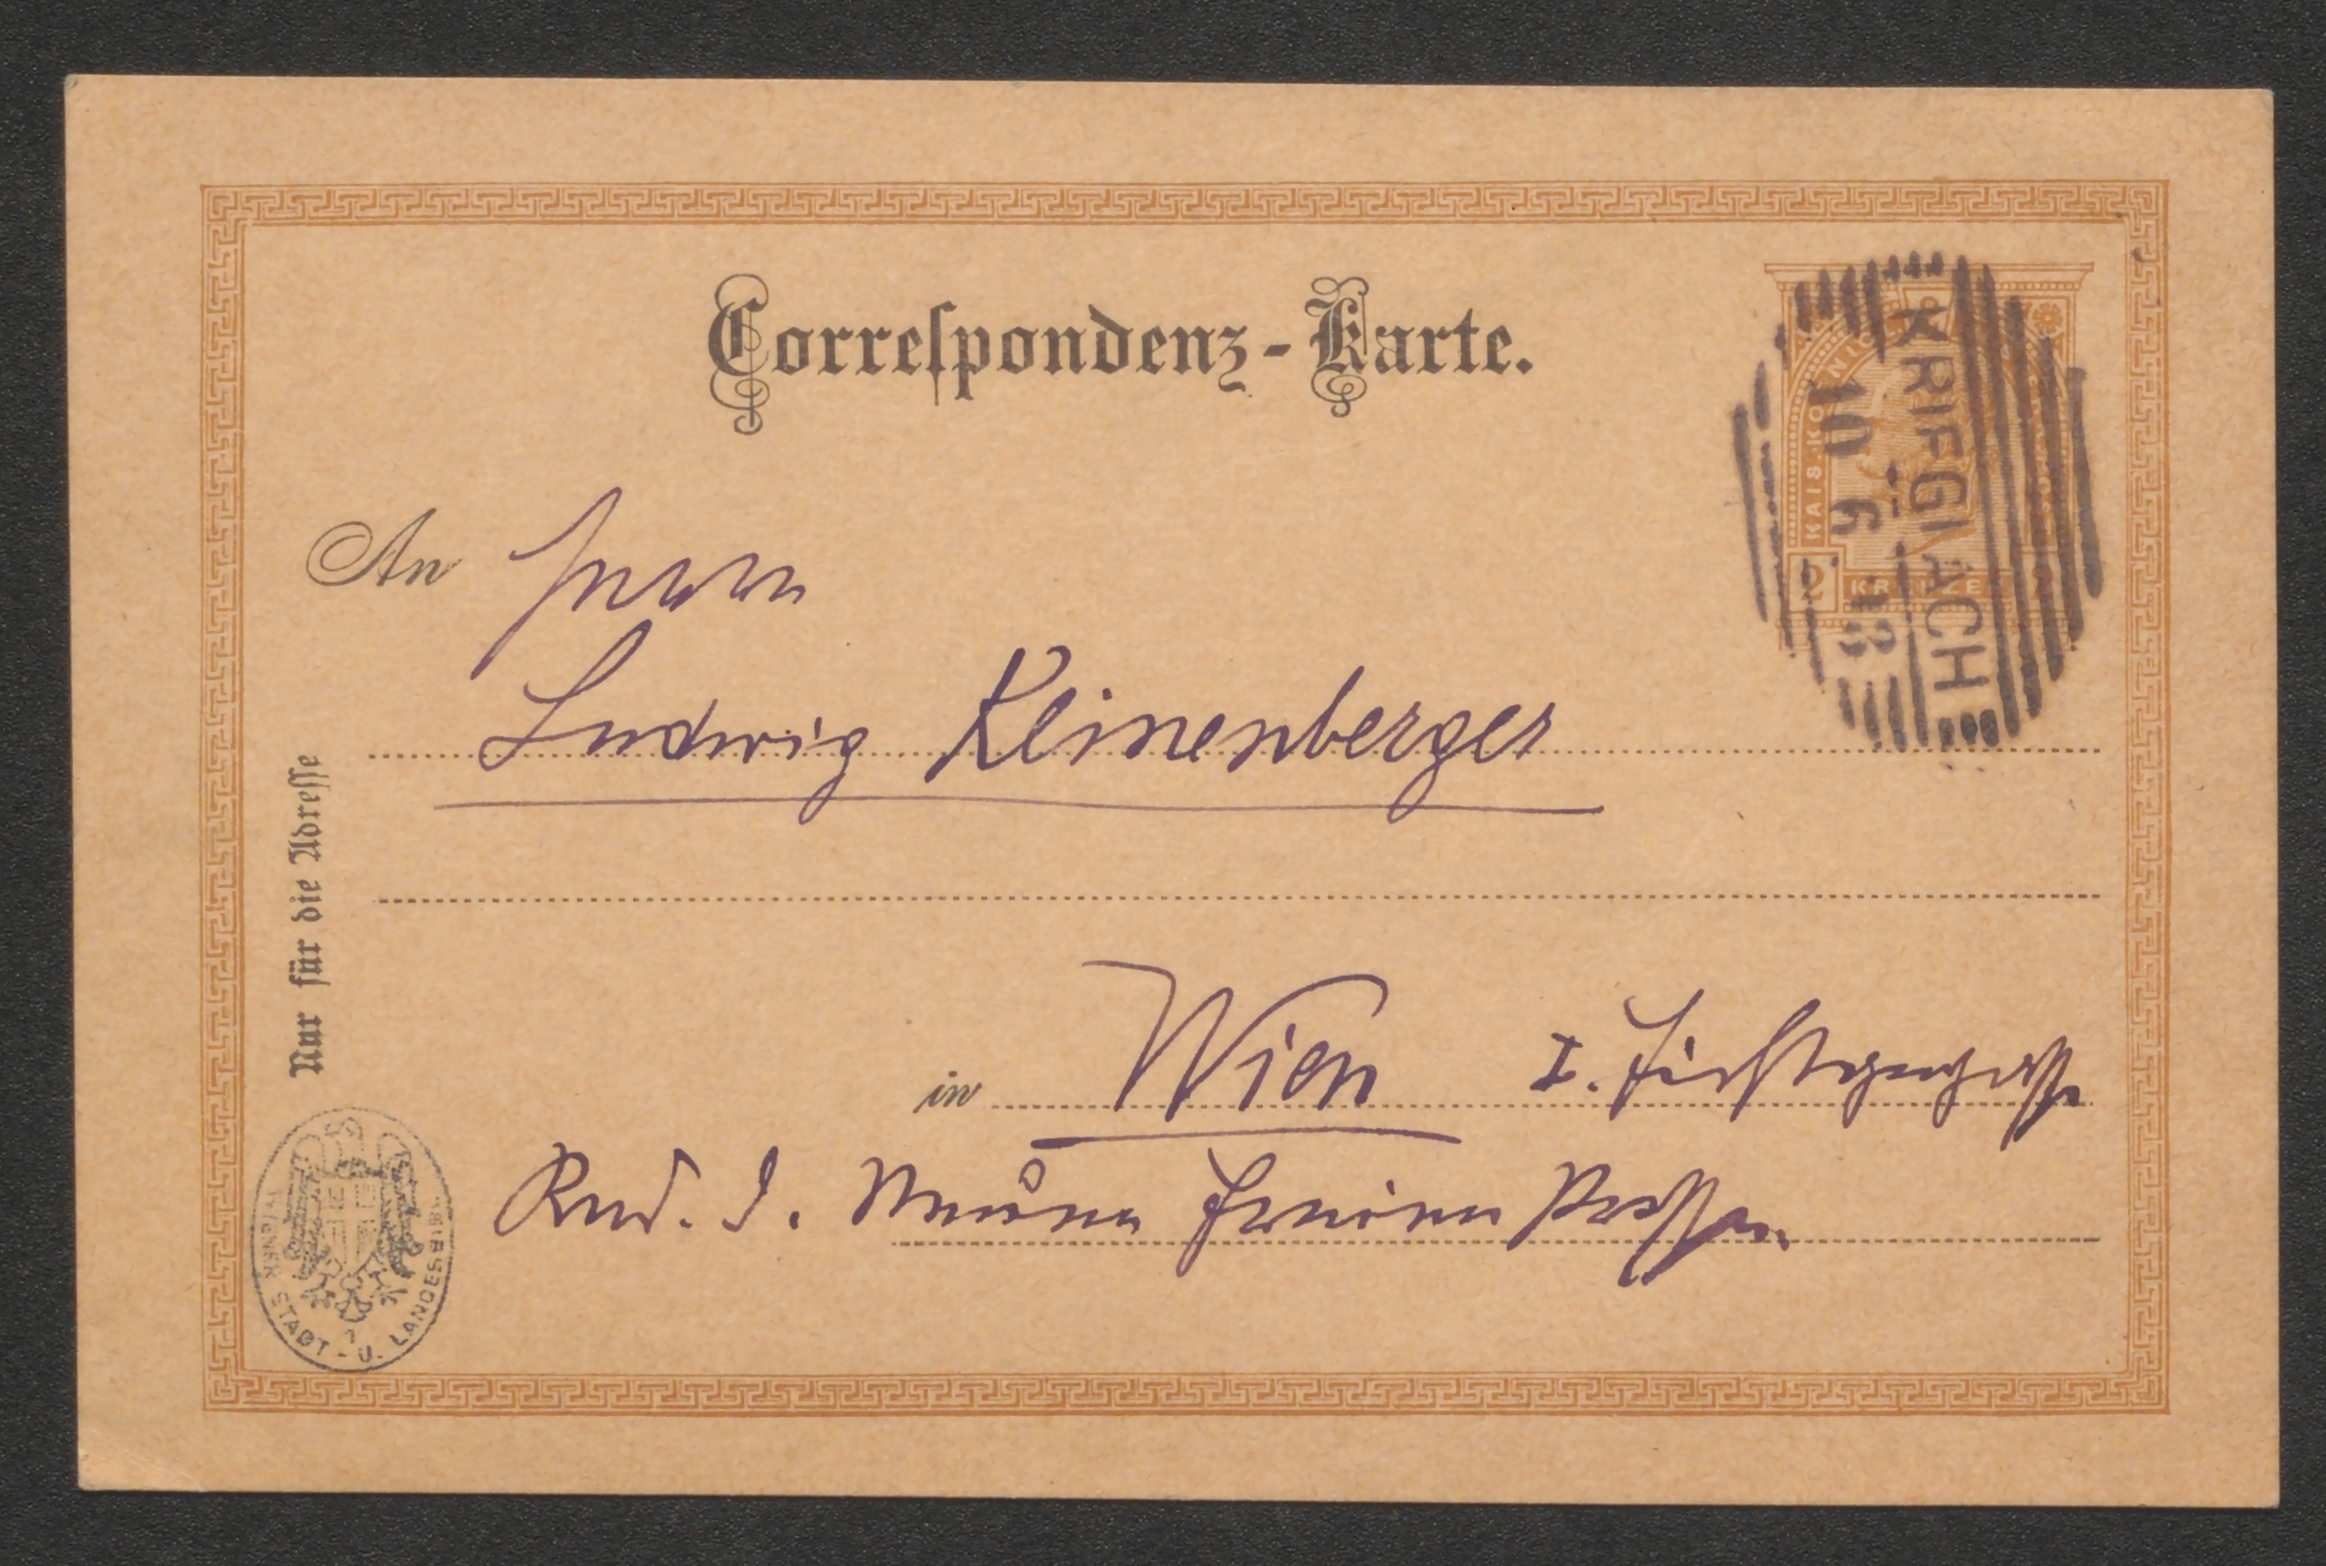 Correſpondenz-Karte.
KRIEGLACH
10 6
KAIS KOENIG
2 KREUZER
An Herrn
Ludwig Kleinenberger
Nur für die Adreſſe
in Wien I. Fichtegasse
Red. d. Neuen Freien Presse.
WIENER STADT-U. LANDESBIBL.